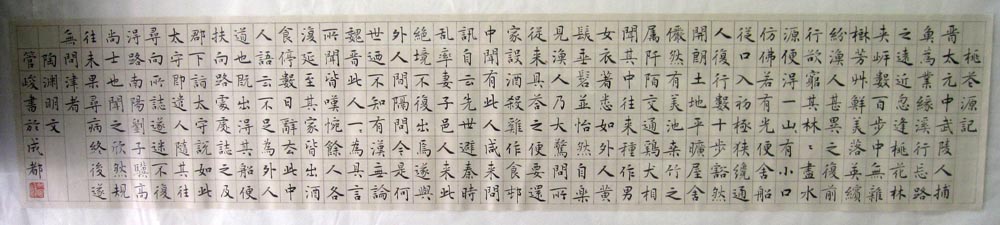 桃花源記
晉太元中武陵人捕
魚為業緣溪行忘路
之遠近忽逢桃花林
夾岸數百步中無雜
樹芳艸鮮美落英繽
紛漁人甚異之復前
行欲窮其林〻盡水
源便得一山〻有小口
仿佛若有光便舍船
從口入初極狹纔通
人復行數十步豁然
開朗土地平曠屋舍
儼然有美池桑竹之
屬阡陌交通雞犬相
聞其中往來種作男
女衣著悉如外人黃
髮垂髫並怡然自樂
見漁人乃大驚問所
從來具答之便要還
家設酒殺雞作食邨
中聞有此人咸來問
訊自云先世避秦時
亂率妻子邑人來此
絕境不復出焉遂與
外人間隔問今是何
世乃不知有漢無論
魏晉此人一〻為具言
所聞皆嘆惋餘人各
復延至其家皆出酒
食停數日辭去此中
人語云不足為外人
道也既出得其船便
扶向路處〻誌之及
郡下詣太守說如此
太守即遣人隨其往
尋向所誌遂迷不復
得路南陽劉子驥高
尚士也聞之欣然規
往未果尋病終後遂
無問津者
陶淵明文
管峻書於成都